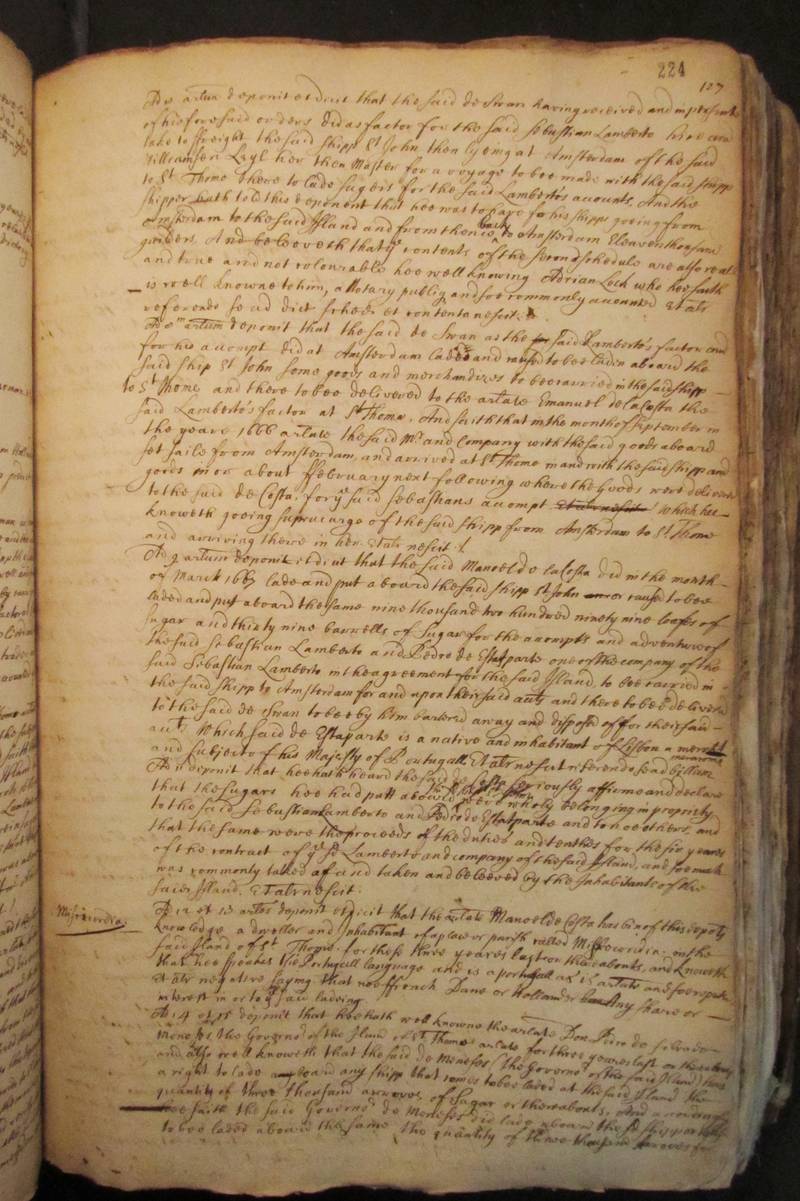 224
127
deponit et dicit that the said de Swan having received and in pursuance
of his foresaid orders did as factor for the said Sebastian Lamberto hire and
take to ffreight the said shipp St John then lyeing at Amsterdam of the said
Williamsen Leyl her then Master for a voyage to bee made with the said shipp
to St Thome there to lade sugers for the said Lamberto's accounts, And the
skipper hath told this deponent that hee was to have for his shipps goeing from
Amsterdam to the said Island and from thence back to Amsterdam Eleaven thousand
guilders. And beleeveth that ye contents of the second schedule are alsoe reall
and true and not colourable hee well knowing Adrian Lock who hee saith
is well knowne to him, a Notary publiq and soe commonly accounted Et alr
referendo se ad dict sched et contenta nescit.
deponit that the said de Swan as the said Lamberto's factor and
for his accompt did at Amsterdam lade and caused to bee laden aboard the
said ship St John some goods and merchandizes to bee carried in the said shipp
to St Thome and there to bee delivered to the arlate Emanuel de la Costa the
said Lamberto's factor at St Thome, And saith that in the month of September in
the yeare 1666 arlate the said Mr and Company with the said goods aboard
set saile from Amsterdam, and arrived at St Thome in and with the said shipp and
goods in or about ffebruary next following where the Goods were delivered
to the said de Costa, for ye said Sebastians accompt which hee
knoweth goeing supracargo of the said shipp from Amsterdam to St Thome
and arriving there in her. Et alr nescit.
Ad 9 artum deponit et dicit that the said Manoel de la Costa did in the month
of March 1667 lade and put aboard the said shipp St John or caused to bee
laded and put aboard the same nine thousand two hundred ninety nine loafes of
sugar and thirty nine barrells of Sugar for the accompts and adventure of
the said Sebastian Lamberto and Pedro de Estaparte one of the company of the
said Sebastian Lamberto in the agreement for the said Island, to bee carried in
the said shipp to Amsterdam for and upon their said accts and there to bee delivered
to the said de Swan to bee by him bartered away and disposed of for their said
accts Which said de Estaparte is a native and inhabitant of Lisbon a merchant
and subject of his Majesty of Portugall, Et alr nescit referendo se ad
deponit that hee hath heard the said de Costa seriously affirme and declare
that the sugars hee had putt aboard the sd shipp were wholy belonging in property
to the said Sebastian Lamberto and Pedro de Estaparte and to noe others, and
that the same were the proceeds of the duties and tenthes for the six yeares
of the contract of ye sd Lamberto and company of the said Island, and soe much
was commonly talked of and taken and beleeved by the Inhabitants of the
said Island. Et alr nescit.
Misericordia.
Ad 12 et 13 artos deponit et dicit that the arlate Manoel de Costa has bin of this deponts
knowledge a dweller and Inhabitant of a place or parish called Misericordia in the
said Island of St Thome for these three yeares last or thereabouts, and knoweth
that hee speakes the Portugall language and is a portugall
Et alr negative saying that noe ffrench Dane or Hollander have any share or
interest in or to ye said ladeing.
Ad 14 et 15 deponit that hee hath well knowne the arlate Don
Meneses the Governor of the Island of St Thome arlate for three yeares last or thereabouts
and alsoe well knoweth that the said de Meneses (the Governor of the said Island) have
a right to lade aboard any shipp that comes to bee laded at the said Island the
quantity of three thousand arroves of Sugar or thereabouts, And accordingly
hee saith the said Governor de Meneses did lade aboard the sd shipp or
to bee laded aboard the same the quantity of three thousand arroves